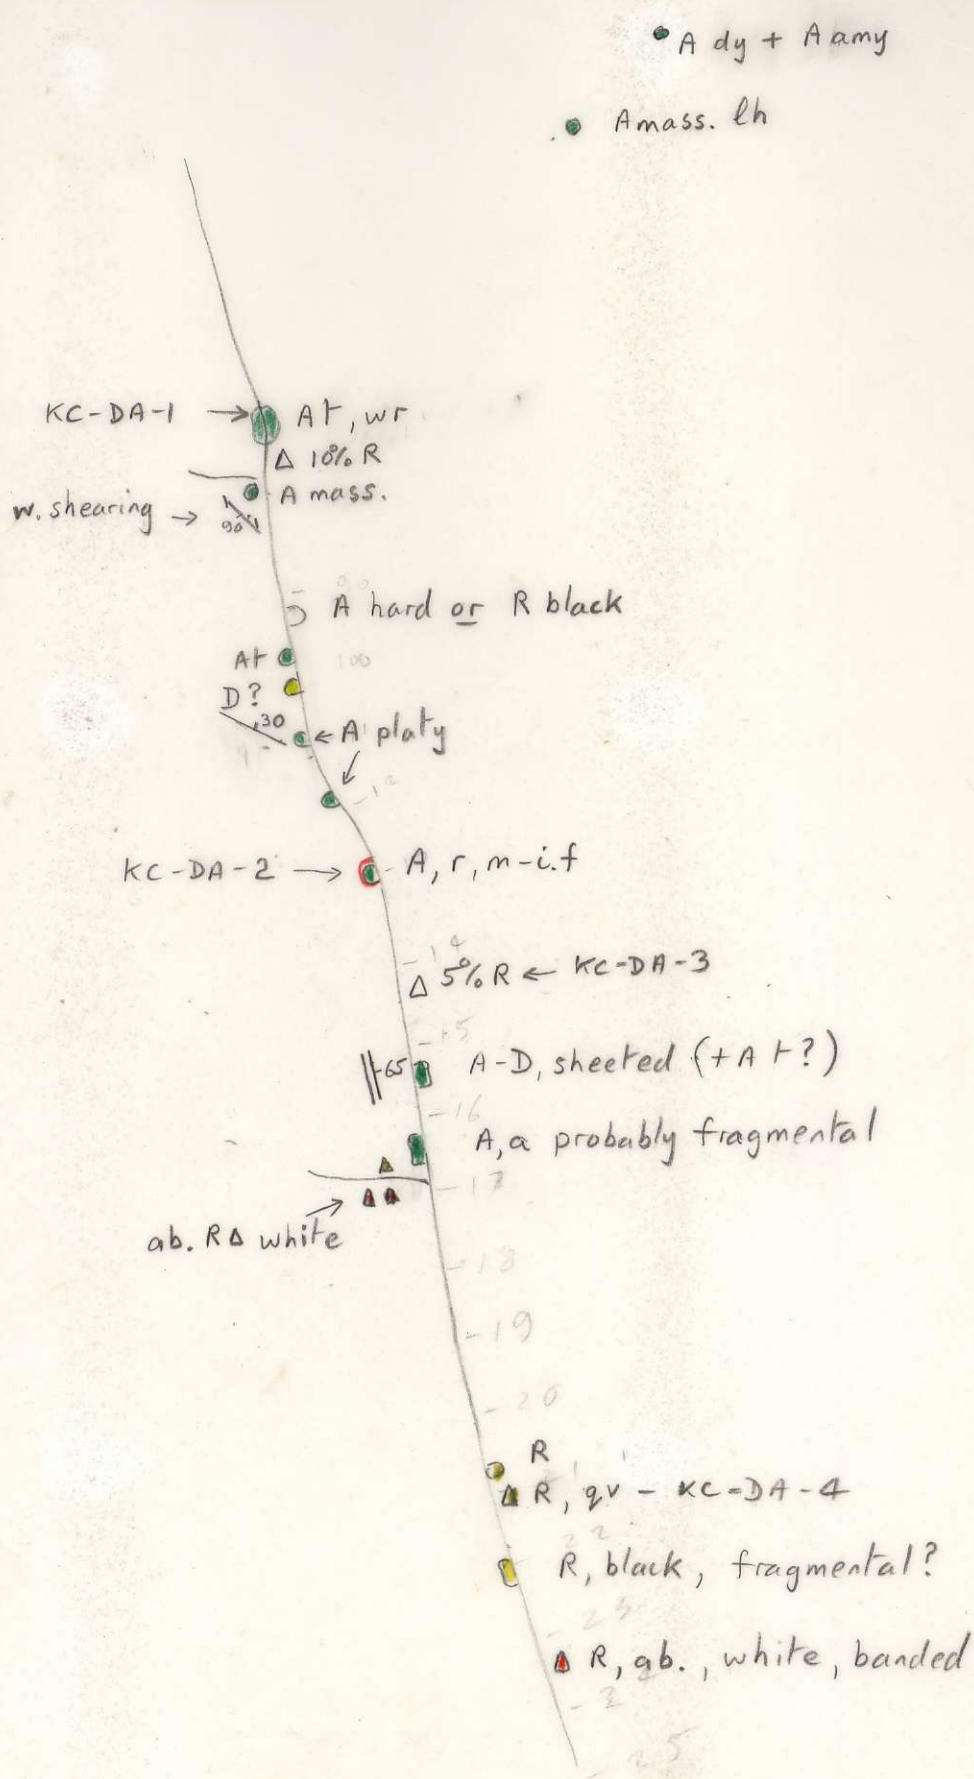 A dy + A amy
A mass. lh
KC-DA-1 → At, wr
Δ 10% R
A mass.
w. shearing →
90
A hard or R black
At
100
D?
30
← A platy
KC-DA-2 → A, r, m-i.f
14
Δ 5% R ← KC-DA-3
15
65 A-D, sheeted (+At?)
16
A, a probably fragmental
17
ab. R Δ white
18
19
20
R
R, qv - KC-DA-4
22
R, black, fragmental?
23
R, ab., white, banded
25